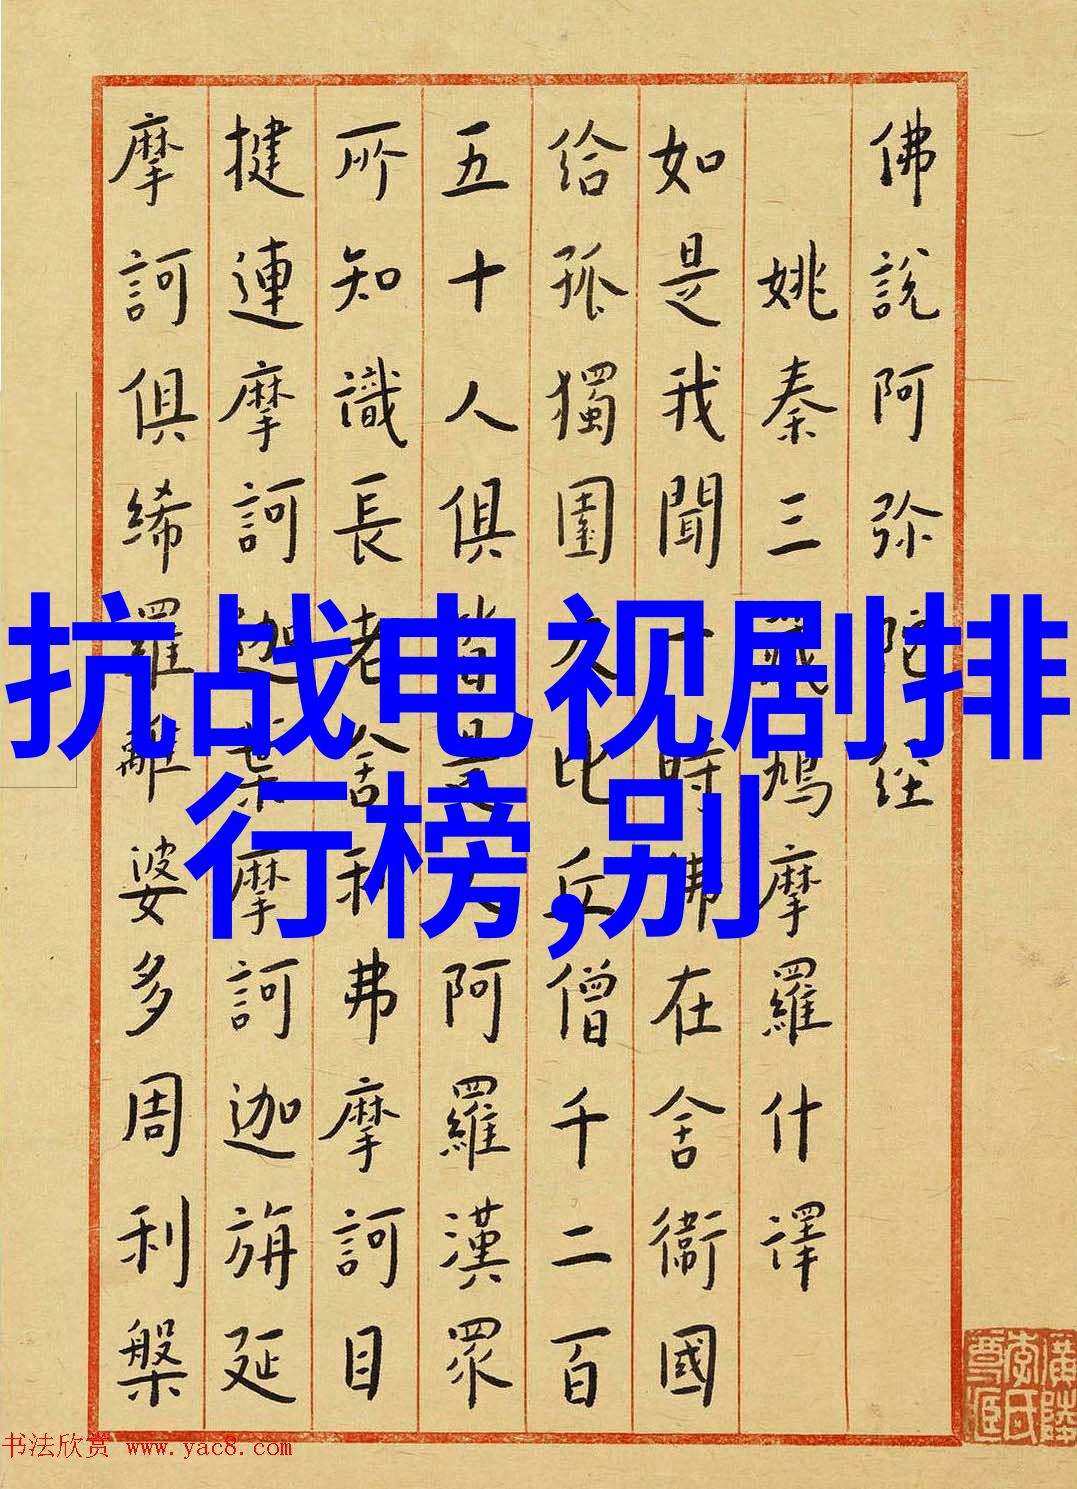 佛說阿弥陀经
姚秦三藏鳩摩羅什譯
如是我聞一時佛在舍衞國
給孤獨園大比丘僧千二百
五十人俱皆是大阿羅漢眾
所知識長老舍利弗摩訶目
揵連摩訶迦葉摩訶迦旃延
摩訶俱絺羅離婆多周利槃
抗战电视剧排
行榜,别
书法欣赏 www.yac8.com